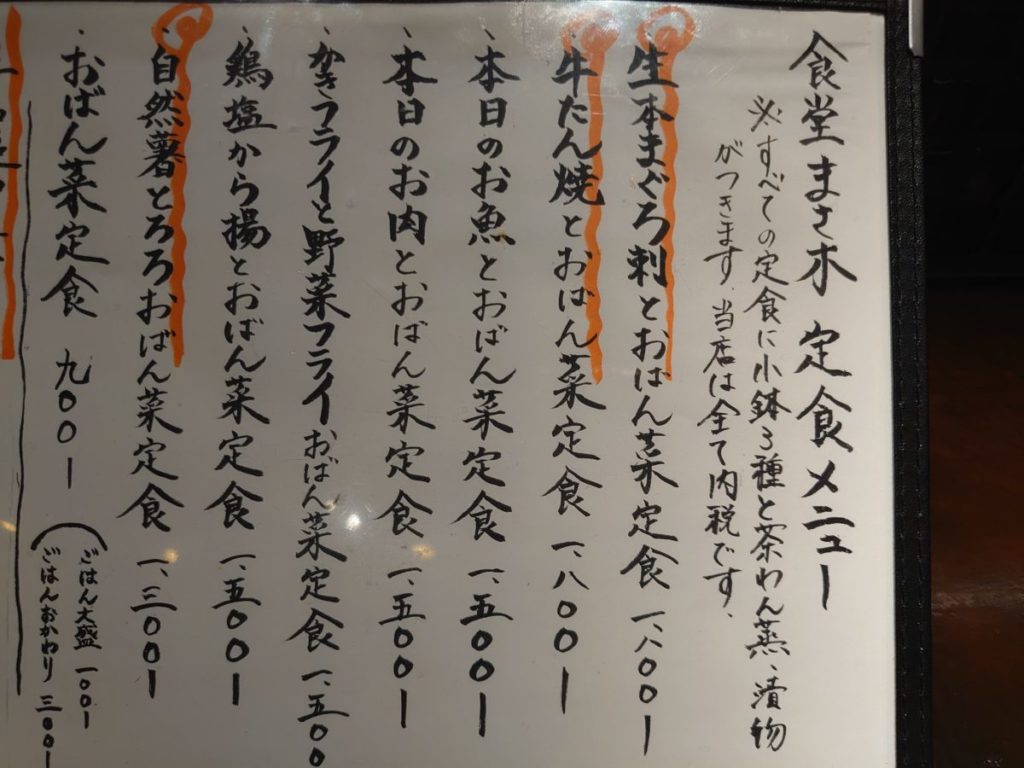 食堂まさ木 定食メニュー
※すべての定食に小鉢3種と茶わん蒸、漬物
がつきます。当店は全て内税です。
、生本まぐろ刺とおばん菜定食 一、八〇〇ー
、牛たん焼とおばん菜定食 一、八〇〇ー
、本日のお魚とおばん菜定食 一、五〇〇ー
、本日のお肉とおばん菜定食 一、五〇〇ー
、かきフライと野菜フライおばん菜定食 一、五〇〇
、鶏塩から揚とおばん菜定食 一、五〇〇ー
、自然薯とろろおばん菜定食 一、三〇〇ー
、おばん菜定食 九〇〇ー
(ごはん大盛 一〇〇ー
ごはんおかわり 三〇〇ー)